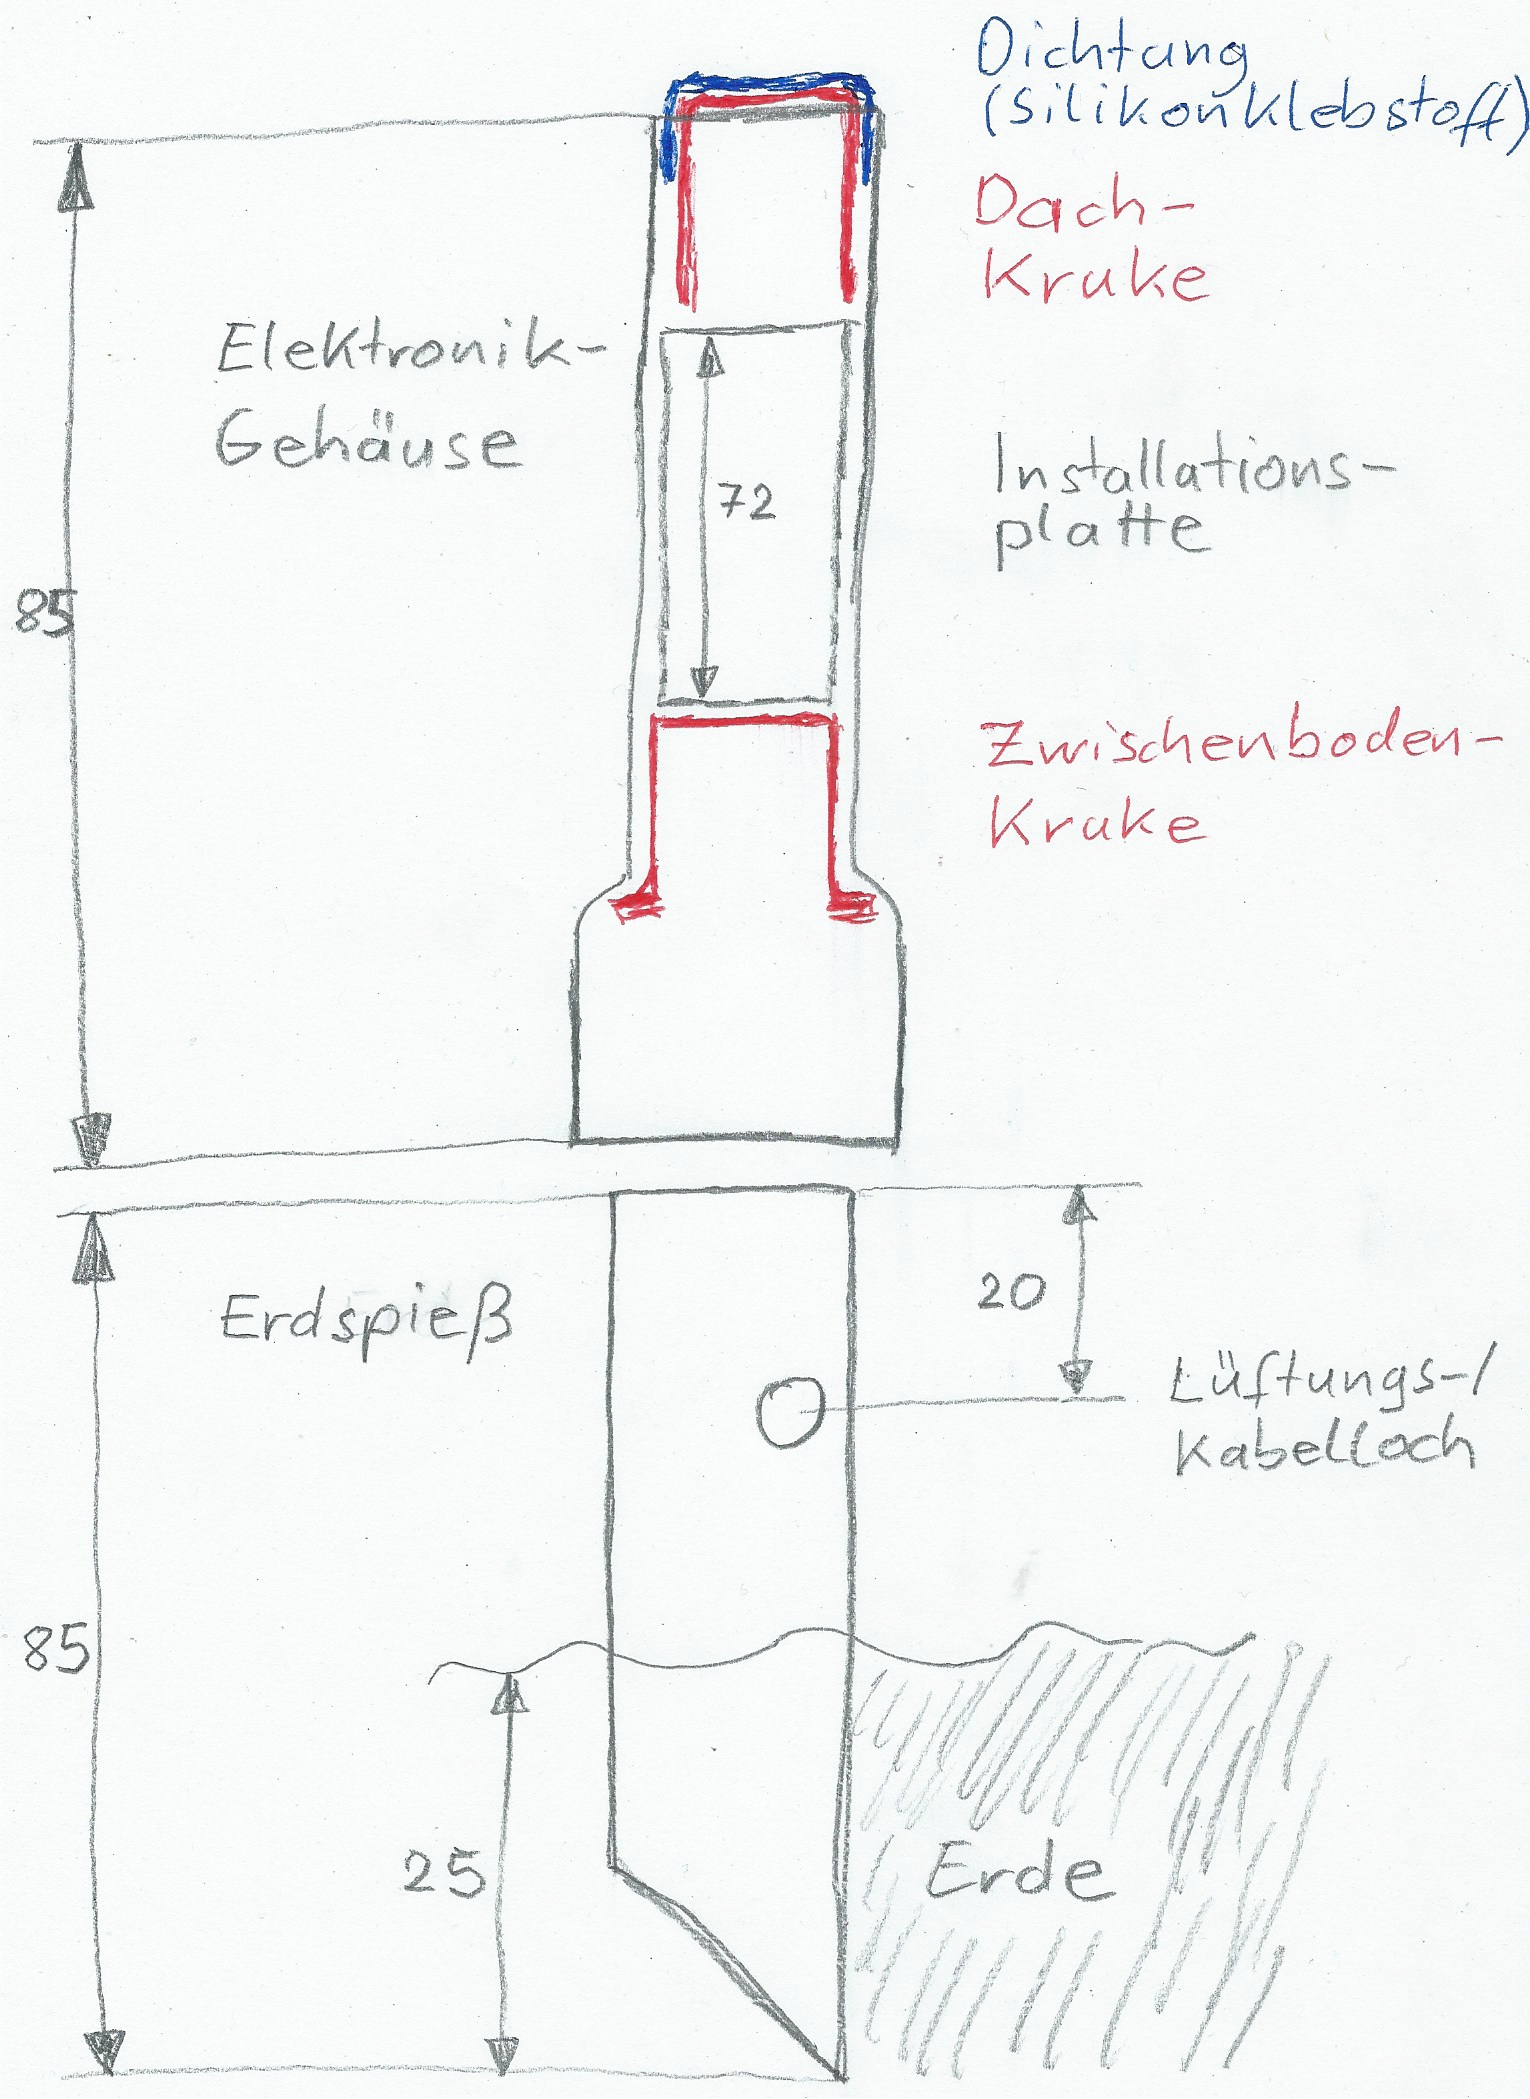 Dichtung
(Silikonklebstoff)
Dach-
Kruke
Elektronik-
Gehäuse
72
Installations-
platte
85
Zwischenboden-
Kruke
20
Erdspieß
Lüftungs-/
Kabelloch
85
25
Erde